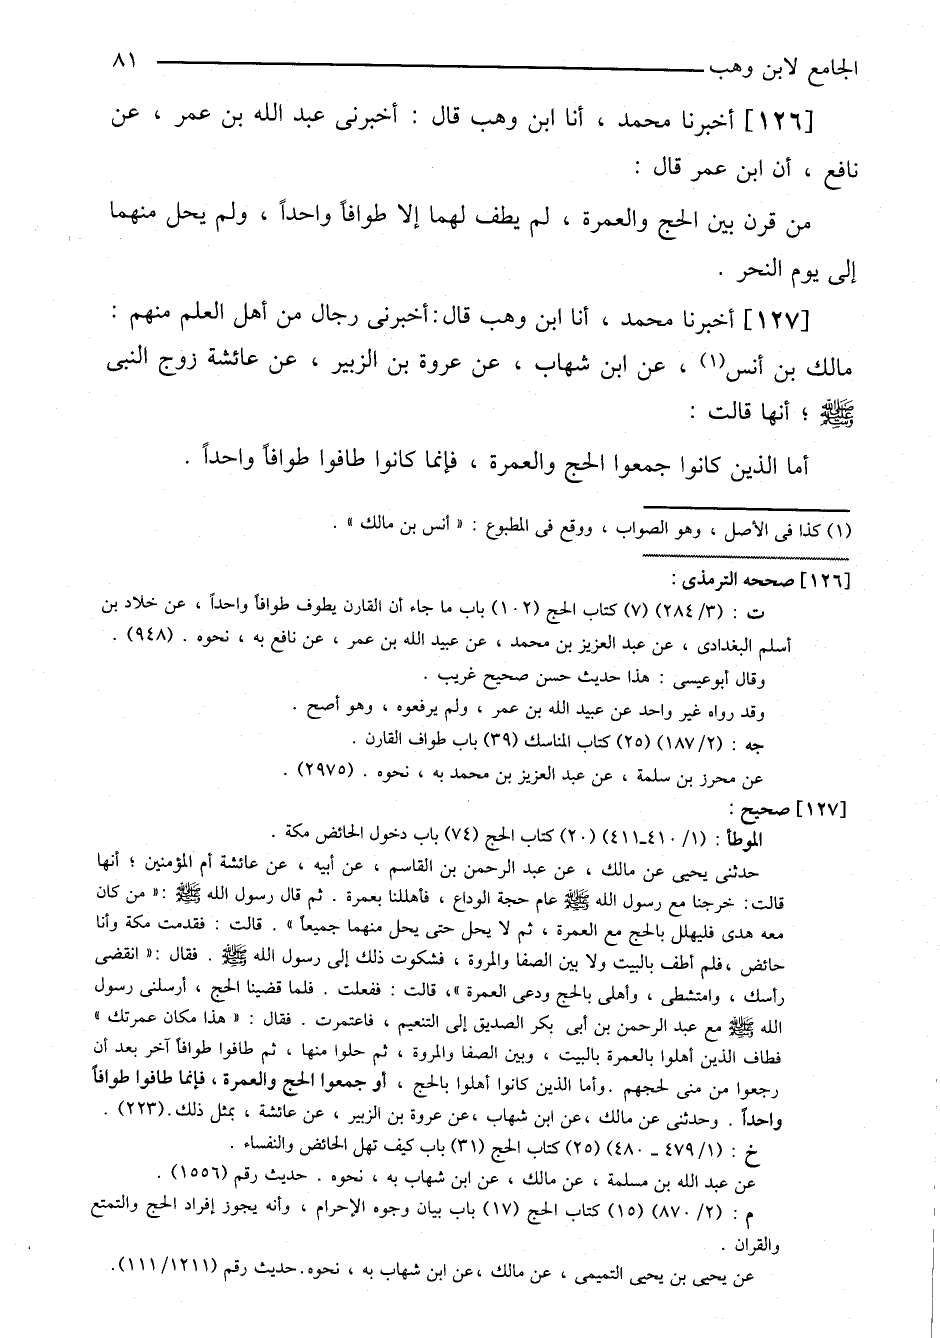 الجامع لابن وهب ٨١
[١٢٦] أخبرنا محمد ، أنا ابن وهب قال : أخبرنى عبد الله بن عمر ، عن
نافع ، أن ابن عمر قال :
من قرن بين الحج والعمرة ، لم يطف لهما إلا طوافاً واحداً ، ولم يحل منهما
إلى يوم النحر .
[١٢٧] أخبرنا محمد ، أنا ابن وهب قال : أخبرنى رجال من أهل العلم منهم :
مالك بن أنس(١) ، عن ابن شهاب ، عن عروة بن الزبير ، عن عائشة زوج النبى
ﷺ ؛ أنها قالت :
أما الذين كانوا جمعوا الحج والعمرة ، فإنما كانوا طافوا طوافاً واحداً .
(١) كذا فى الأصل ، وهو الصواب ، ووقع فى المطبوع : « أنس بن مالك » .
[١٢٦] صححه الترمذى :
ت : (٣/ ٢٨٤) (٧) كتاب الحج (١٠٢) باب ما جاء أن القارن يطوف طوافاً واحداً ، عن خلاد بن
أسلم البغدادى ، عن عبد العزيز بن محمد ، عن عبيد الله بن عمر ، عن نافع به ، نحوه . (٩٤٨) .
وقال أبوعيسى : هذا حديث حسن صحيح غريب .
وقد رواه غير واحد عن عبيد الله بن عمر ، ولم يرفعوه ، وهو أصح .
جه : (٢/ ١٨٧) (٢٥) كتاب المناسك (٣٩) باب طواف القارن .
عن محرز بن سلمة ، عن عبد العزيز بن محمد به ، نحوه . (٢٩٧٥) .
[١٢٧] صحيح :
الموطأ : (١/ ٤١٠ـ٤١١) (٢٠) كتاب الحج (٧٤) باب دخول الحائض مكة .
حدثنى يحيى عن مالك ، عن عبد الرحمن بن القاسم ، عن أبيه ، عن عائشة أم المؤمنين ؛ أنها
قالت: خرجنا مع رسول الله ﷺ عام حجة الوداع ، فأهللنا بعمرة . ثم قال رسول الله ﷺ :« من كان
معه هدى فليهلل بالحج مع العمرة ، ثم لا يحل حتى يحل منهما جميعاً » . قالت : فقدمت مكة وأنا
حائض ،فلم أطف بالبيت ولا بين الصفا والمروة ، فشكوت ذلك إلى رسول الله ﷺ . فقال :« انقضى
رأسك ، وامتشطى ، وأهلى بالحج ودعى العمرة »، قالت : ففعلت . فلما قضينا الحج ، أرسلنى رسول
الله ﷺ مع عبد الرحمن بن أبى بكر الصديق إلى التنعيم ، فاعتمرت . فقال : « هذا مكان عمرتك »
فطاف الذين أهلوا بالعمرة بالبيت ، وبين الصفا والمروة ، ثم حلوا منها ، ثم طافوا طوافاً آخر بعد أن
رجعوا من منى لحجهم .وأما الذين كانوا أهلوا بالحج ، أو جمعوا الحج والعمرة ، فإنما طافوا طوافاً
واحداً . وحدثنى عن مالك ،عن ابن شهاب ،عن عروة بن الزبير ، عن عائشة ، بمثل ذلك.(٢٢٣) .
خ : (١/ ٤٧٩ ـ ٤٨٠) (٢٥) كتاب الحج (٣١) باب كيف تهل الحائض والنفساء .
عن عبد الله بن مسلمة ، عن مالك ، عن ابن شهاب به ، نحوه . حديث رقم (١٥٥٦) .
م : (٢/ ٨٧٠) (١٥) كتاب الحج (١٧) باب بيان وجوه الإحرام ، وأنه يجوز إفراد الحج والتمتع
والقران .
عن يحيى بن يحيى التميمى ، عن مالك ،عن ابن شهاب به ، نحوه.حديث رقم (١٢١١/ ١١١).